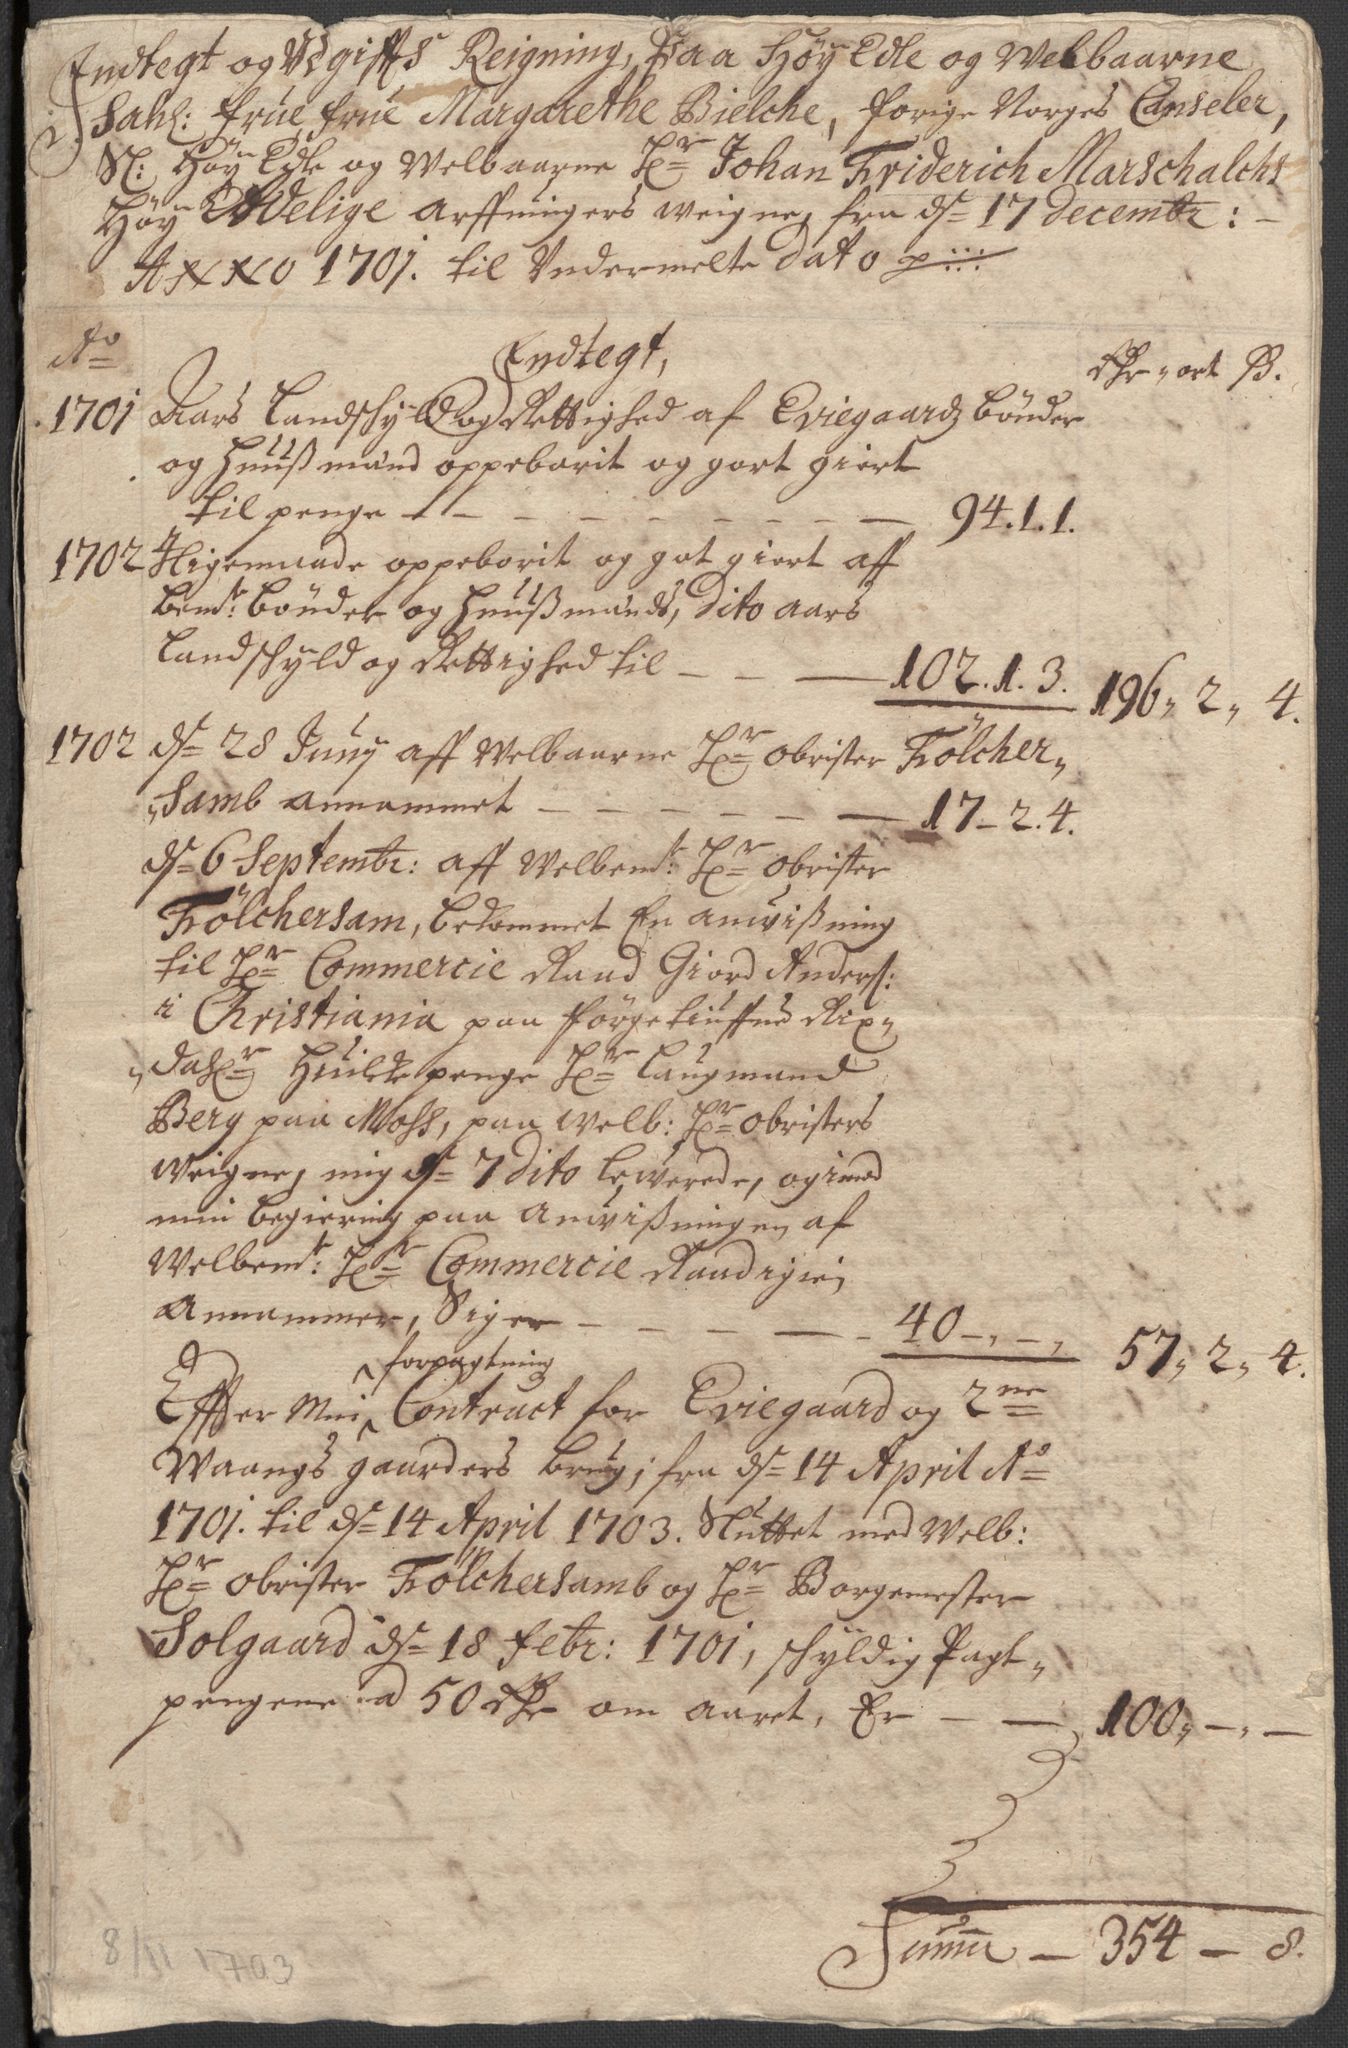 Indtegt og Udgiffts Reigning, Paa Høy Edle og Welbaarne
Sahl: frue, frue Margarethe Bielche, forige Norges Canseler,
Sl: Høy Edle og Welbaarne Hr Johan Friderich Marschalchs
Høy Adelige arffwingers weigne, fra ds 17 decembr: -
Anno 1701. til Undermelte dato p:::
Ao
Indtegt,
Rdr - ort ß.
1701 Aars Landschyld og Rettighed af Eviegaards bønder
og Huußmænd oppeborit og giort giert
til penge - - - - - - - 94.1.1.
1702 Ligemaade oppeborit og got giert aff
bemte: bønder og Huußmænds, dito aars
Landschyld og Rettighed til - - - 102.1.3. 196,, 2,, 4.
1702 ds 28 Juny aff Welbaarne Hr obrister Fölcher,,
,,Samb annammet - - - - - - 17-2.4.
ds 6 Septembr: aff Welbemt: Hr obrister
Fölchersam, bekommet En anvißning
til Hr Commercie Raad Giord Anders:
i Christiania paa førgetiuffue Rix,,
,,dahlr Huilke penge Hr Laugmand
Berg paa Moss, paa Welb: Hr obristers
Weigne, mig ds 7 dito leverede, og imod
min begiering paa Anvißningen af
Welbemt: Hr Commercie Raad igien
Annammer, Siger - - - - - 40 -,, -,, 57,, 2,, 4.
forpagtning
Effter Min Contract for Eviegaard og 2ne
Waangs gaarders brug, fra ds 14 April Ao
1701. til ds 14 April 1703. Sluttet med Welb:
Hr obrister Fölchersamb og Hr Borgemester
Solgaard ds 18 febr: 1701, schyldig Pagt,,
pengene a 50 Rdr om aaret, Er - - 100,, -,, -
Summa - 354 - 8.
8/11 1703